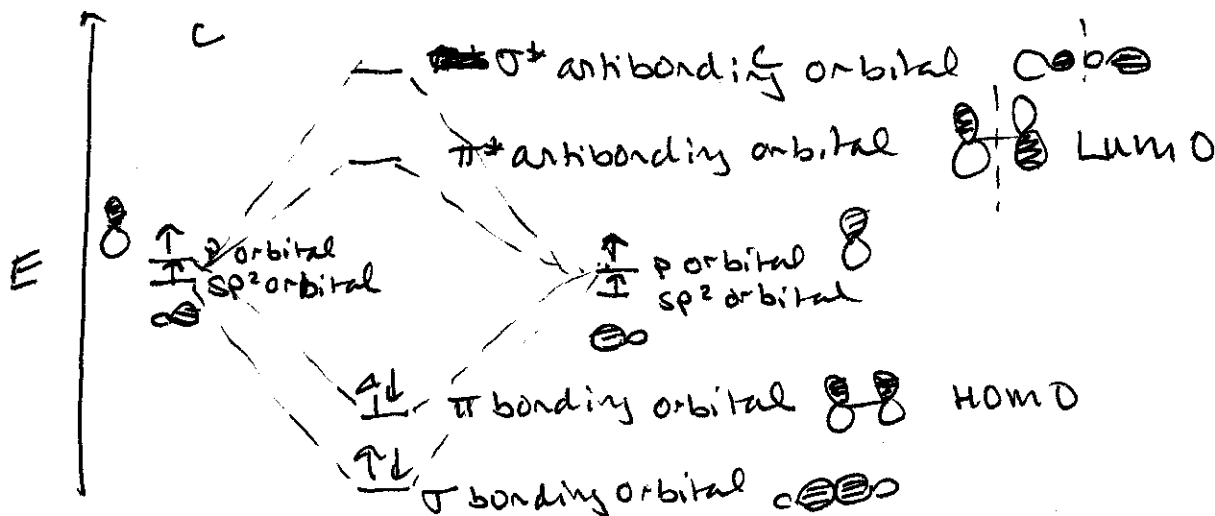 C
σ* antibonding orbital
π* antibonding orbital LUMO
E
↑ p orbital
↑ sp² orbital
↑ p orbital
↑ sp² orbital
↑↓ π bonding orbital HOMO
↑↓ σ bonding orbital